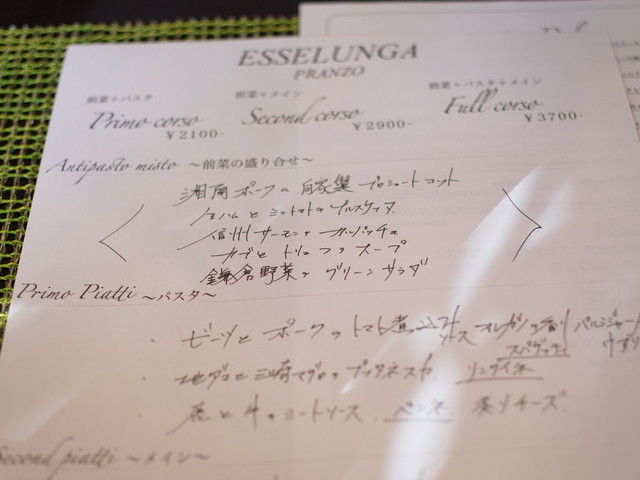 ESSELUNGA
PRANZO
前菜＋パスタ
Primo corso
￥2100-
前菜＋メイン
Second corso
￥2900-
前菜＋パスタ＋メイン
Full corso
￥3700-
Antipasto misto ～前菜の盛り合せ～
湘南ポークの自家製プロシュートコット
生ハムとミニトマトのブルスケッタ
信州サーモンのカルパッチョ
カブとトリュフのスープ
鎌倉野菜のグリーンサラダ
Primo Piatti ～パスタ～
・ビーツとポークのトマト煮込みソース オレガノの香り パルミジャーノ
スパゲッティ
・地ダコと三崎マグロのプッタネスカ リングイネ
・鹿と牛のミートソース ペンネ 炙りチーズ
Second piatti ～メイン～